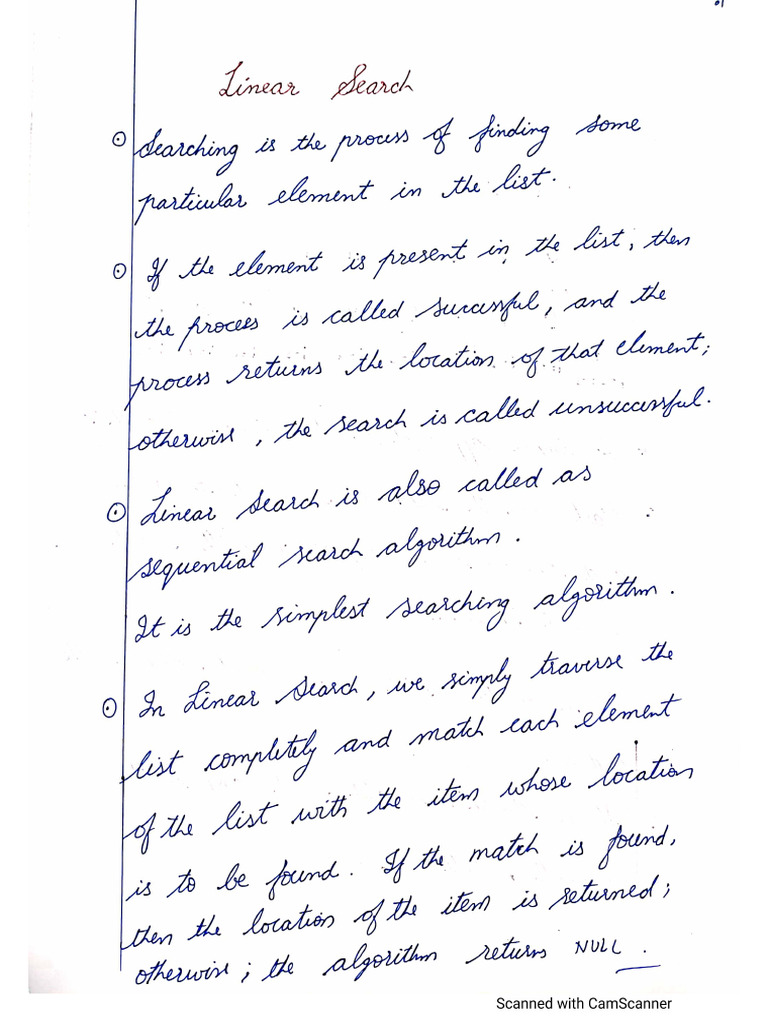 Linear Search
Searching is the process of finding some
particular element in the list.
If the element is present in the list, then
the process is called successful, and the
process returns the location of that element;
otherwise, the search is called unsuccessful.
Linear Search is also called as
sequential search algorithm.
It is the simplest searching algorithm.
In Linear Search, we simply traverse the
list completely and match each element
of the list with the item whose location
is to be found. If the match is found,
then the location of the item is returned;
otherwise; the algorithm returns NULL.
Scanned with CamScanner